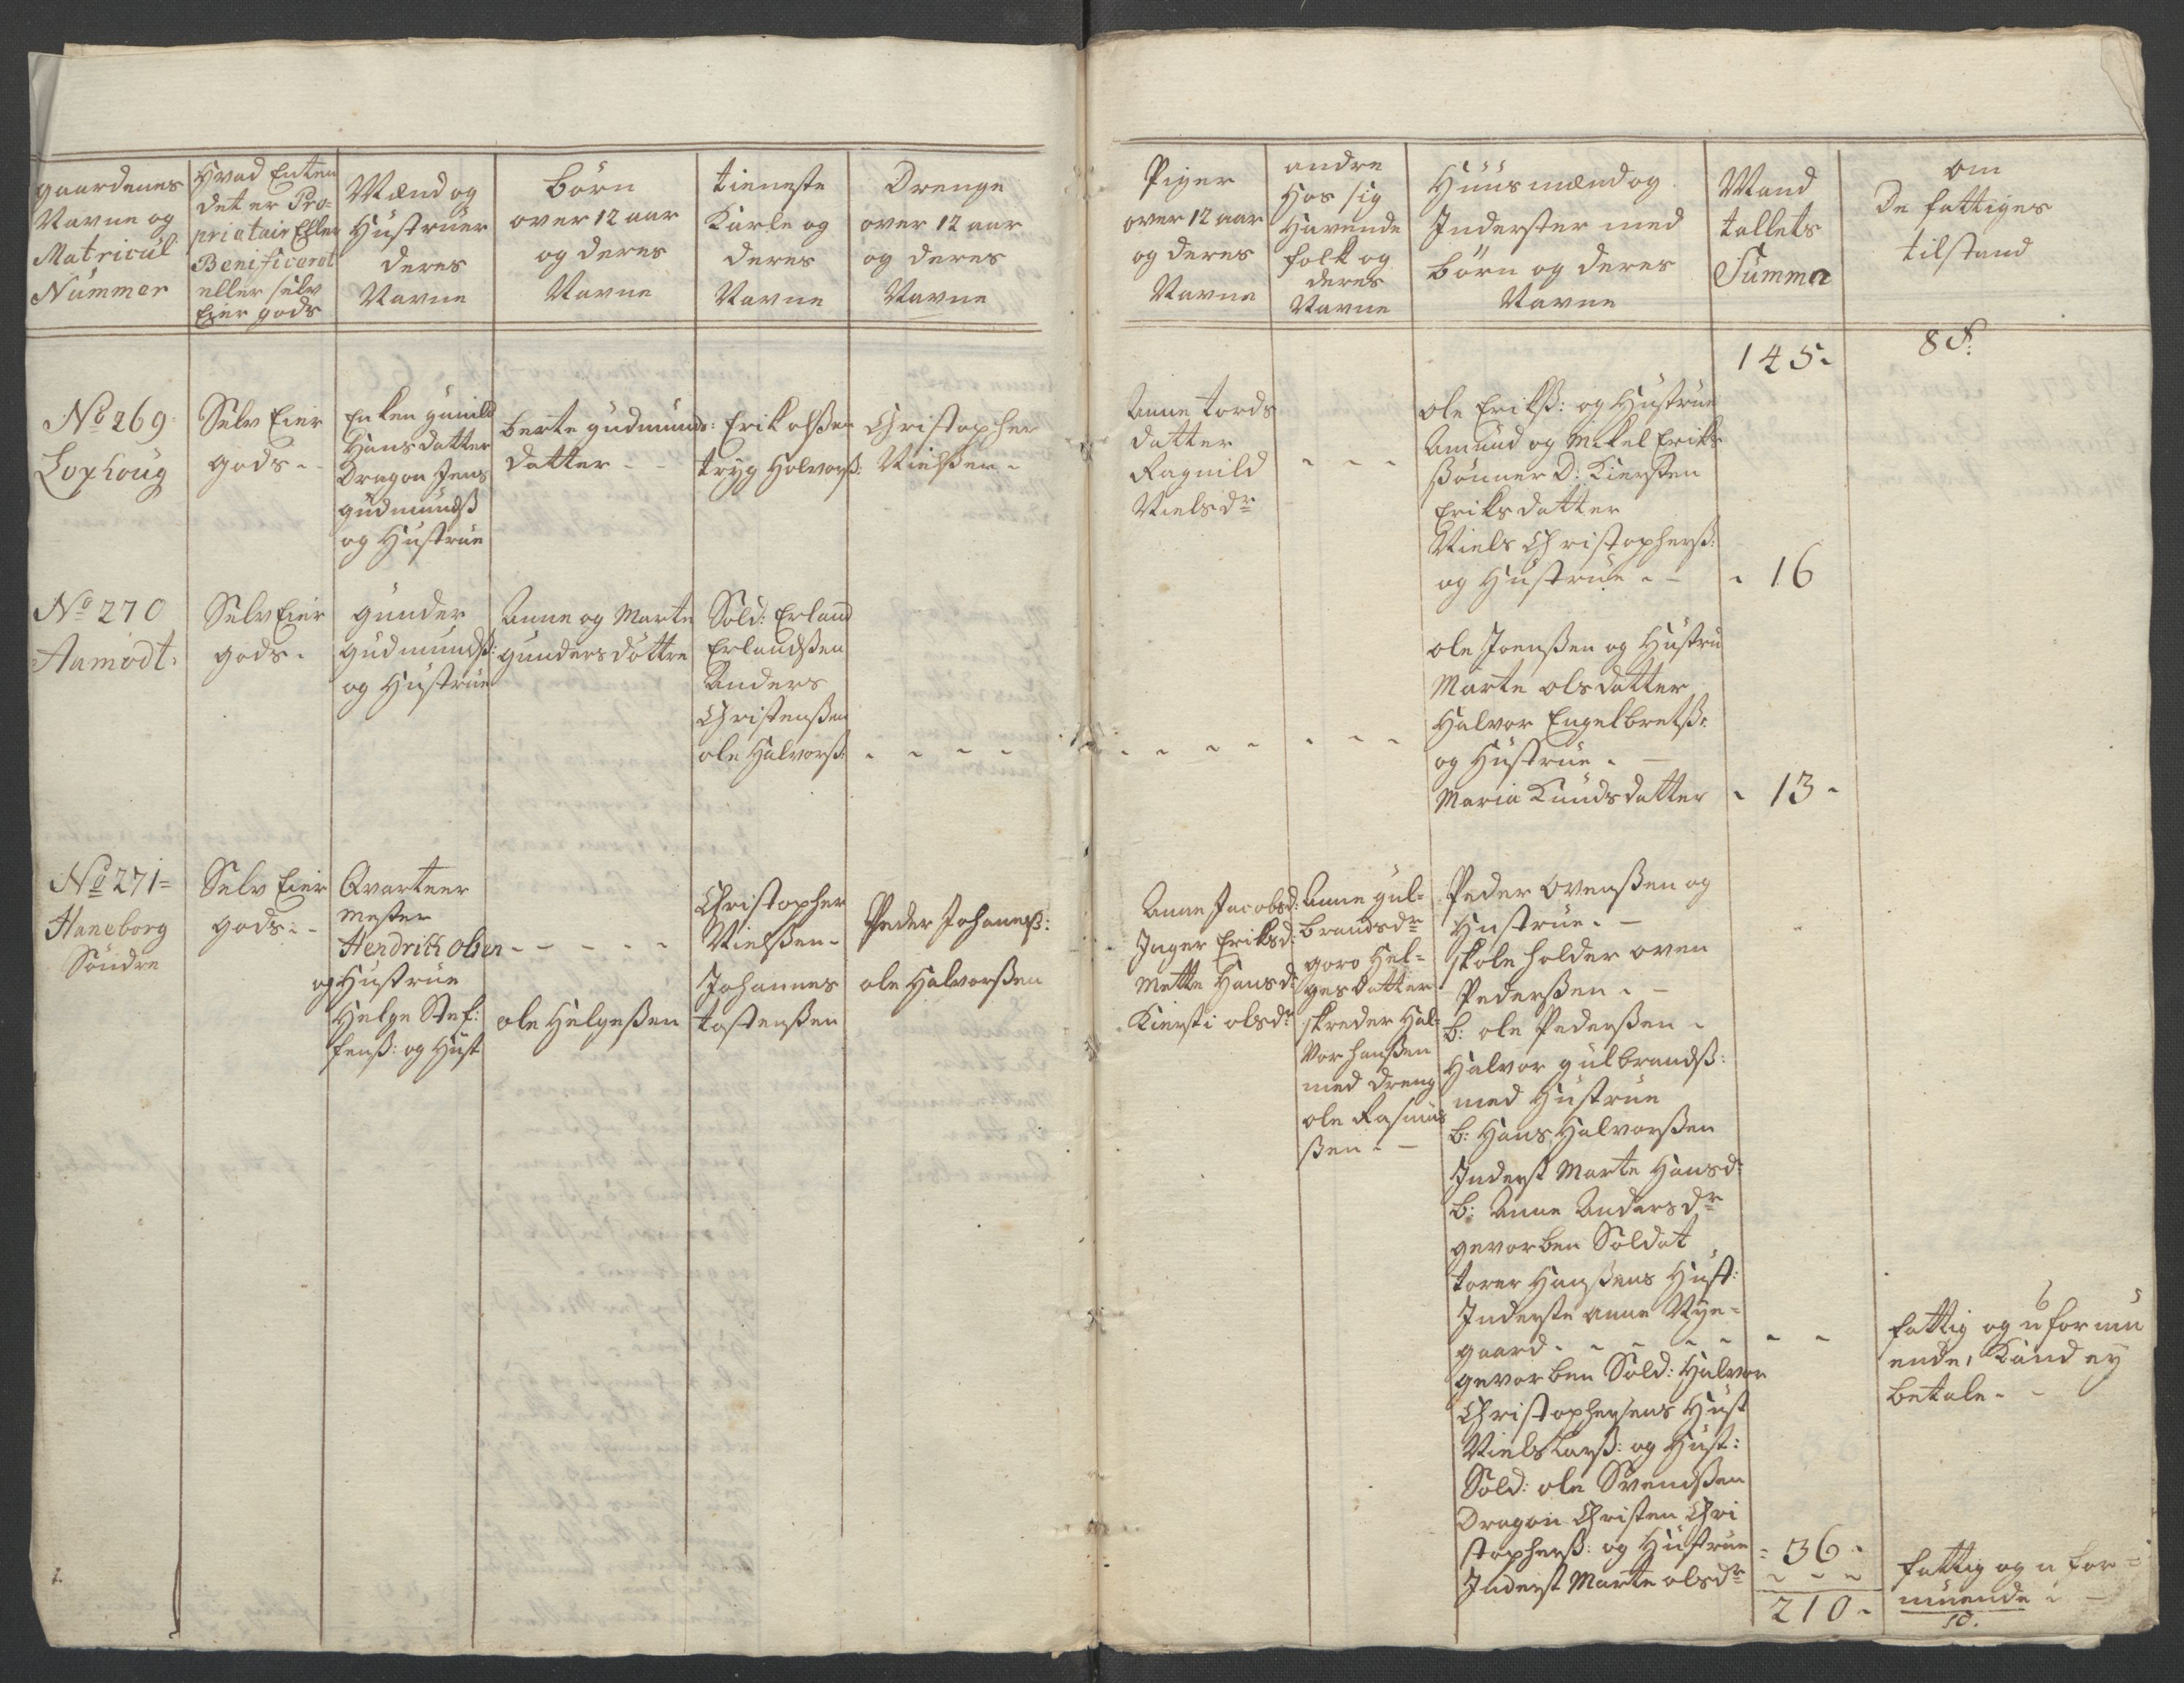 gaardenes
Navne og
Matricul
Nummer
Hvad Enten
det er Pro-
prietair Eller
Benificeret
eller selv
Eier gods
Mænd og
Hustruer
deres
Navne
Börn
over 12 aar
og deres
Navne
tieneste
Karle og
deres
Navne
Drenge
over 12 aar
og deres
Navne
Piger
over 12 aar
og deres
Navne
andre
Hos sig
Havende
folk og
deres
Navne
Huusmænd og
Inderster med
börn og deres
Navne
Mand
tallets
Summa
om
De fattiges
tilstand
145.
8
No 269
Lophoug
Selv Eier
gods -
Enken gunild
Hansdatter
Dragon Jens
gudmundß
og Hustrue
berte gudmunds:
datter - -
Erik olßen
tryg Halvorß:
Christopher
Nielßen -
Anne tords
datter
Ragnild
Nielsdr
- - -
ole Erikß: og Hustrue
Amund og Mikel Eriks
ßönner D: Kiersten
Eriksdatter
Niels Christopherß:
og Hustrue - -
- 16
No 270
Aamodt.
Selv Eier
gods -
gunder
gudmundß:
og Hustrue
Anne og Marte
gundersdöttre
Sold: Erland
Erlandßen
Anders
Christenßen
ole Halvorß:
- - - -
- - - -
- - -
ole Joenßen og Hustru
Marte olsdatter
Halvor Engelbretß:
og Hustrue - -
Maria Knudsdatter
- 13 -
No 271=
Haneborg
Söndre
Selv Eier
gods - -
Qvarteer
Mester
Hendrich olsen
og Hustrue
Helge Stef:
fenß: og Hust
- - - - -
ole Helgeßen
Christopher
Nielßen -
Johannes
tostenßen
Peder Johanneß:
ole Halvorßen
Anne Jacobsd:
Inger Eriksd:
Mette Hansd:
Kiersti olsdr
Anne gul-
brandsdr
goro Hel-
gesdatter
skreder Hal-
vor Hanßen
med dreng
ole Rasmus
ßen - -
Peder ovenßen og
Hustrue - -
skoleholder oven
Pederßen - -
b: ole Pederßen -
Halvor gulbrandß:
med Hustrue
b: Hans Halvorßen
Inderst Marte Hansd:
b: Anne Andersdr
gevorben Soldat
torer Hanßens Hust:
Inderste Anne Nye-
gaard - - - - -
gevorben Sold: Halvor
Christophersens Hust
Niels Larß: og Hust:
Sold: ole Svendßen
Dragon Christen Chri
stopherß: og Hustrue
Inderst Marte olsdr
- -
fattig og uformu
ende, Kand ey
betale - -
- 36 -
- - -
210 -
fattig og u for-
muende -
10.